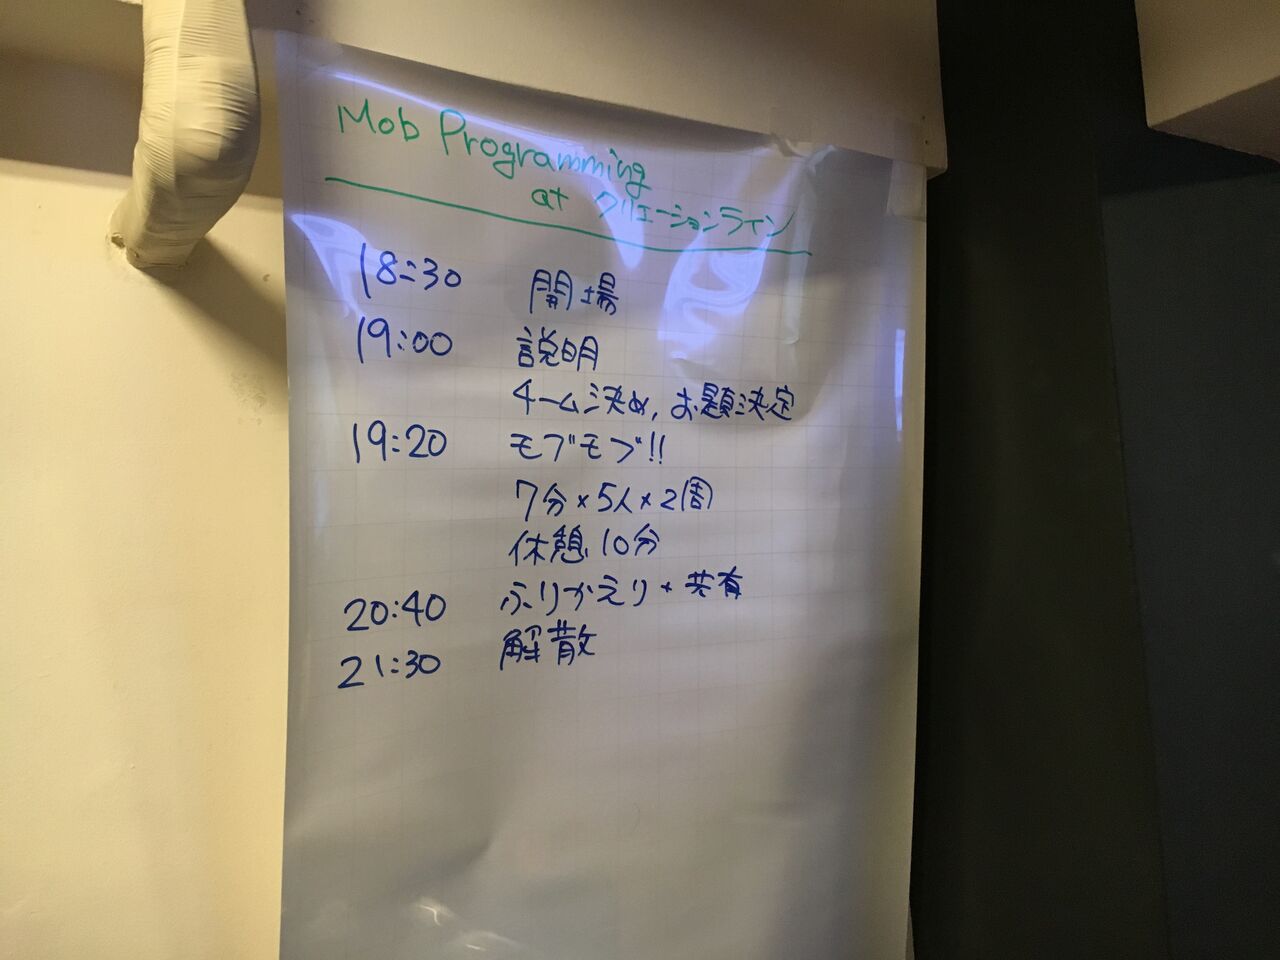 Mob Programming
at クリエーションライン
18:30 開場
19:00 説明
チーム決め, お題決定
19:20 モブモブ!!
7分×5人×2周
休憩 10分
20:40 ふりかえり+共有
21:30 解散